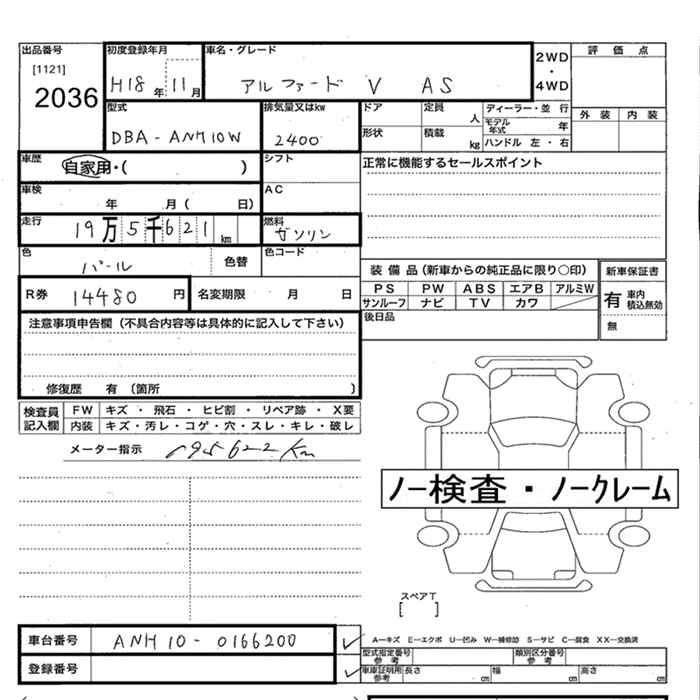 出品番号 初度登録年月 車名・グレード 2WD 評価点
[1121] H18年11月 アルファード V AS ・
2036 4WD
型式 排気量又はkw ドア 定員 人 ディーラー・並行 外装 内装
DBA-ANH10W 2400 形状 積載 kg モデル年式 年
ハンドル 左・右
車歴 自家用・( ) シフト 正常に機能するセールスポイント
車検 年 月( 日) AC
走行 19万5千621km 燃料 ガソリン
色 パール 色替 色コード 装備品(新車からの純正品に限り○印) 新車保証書
R券 14480円 名変期限 月 日 PS PW ABS エアB アルミW 有 車内積込無効
サンルーフ ナビ TV カワ
注意事項申告欄(不具合内容等は具体的に記入して下さい) 後日品 無
修復歴 有 (箇所 )
検査員記入欄 FW キズ・飛石・ヒビ割・リペア跡・X要
内装 キズ・汚レ・コゲ・穴・スレ・キレ・破レ
メーター指示 195622Km
ノー検査・ノークレーム
スペアT
[ ]
車台番号 ANH10-0166200 A―キズ E―エクボ U―凹み W―補修跡 S―サビ C―腐食 XX―交換済
型式指定番号 参考 類別区分番号 参考
登録番号 車車証明用 参考 長さ cm 幅 cm 高さ cm